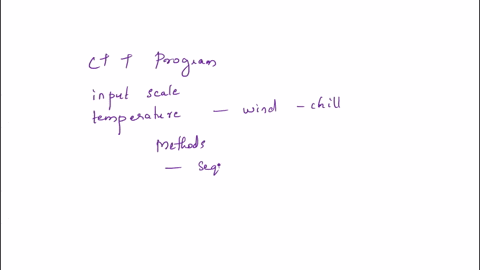 C++ Program
input scale
temperature - wind - chill
Methods
- seq